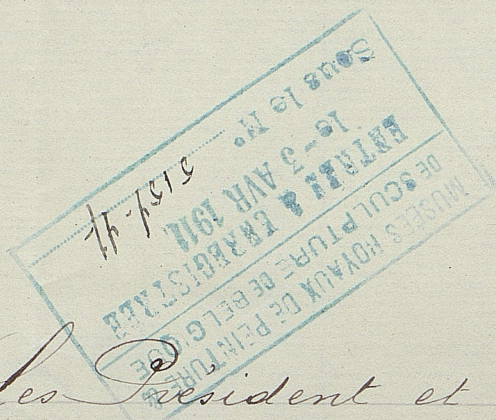 MUSÉES ROYAUX DE PEINTURE &
DE SCULPTURE DE BELGIQUE
ENTRÉE & ENREGISTRÉE
le - 3 AVR 1911
Sous le N°
les Président et